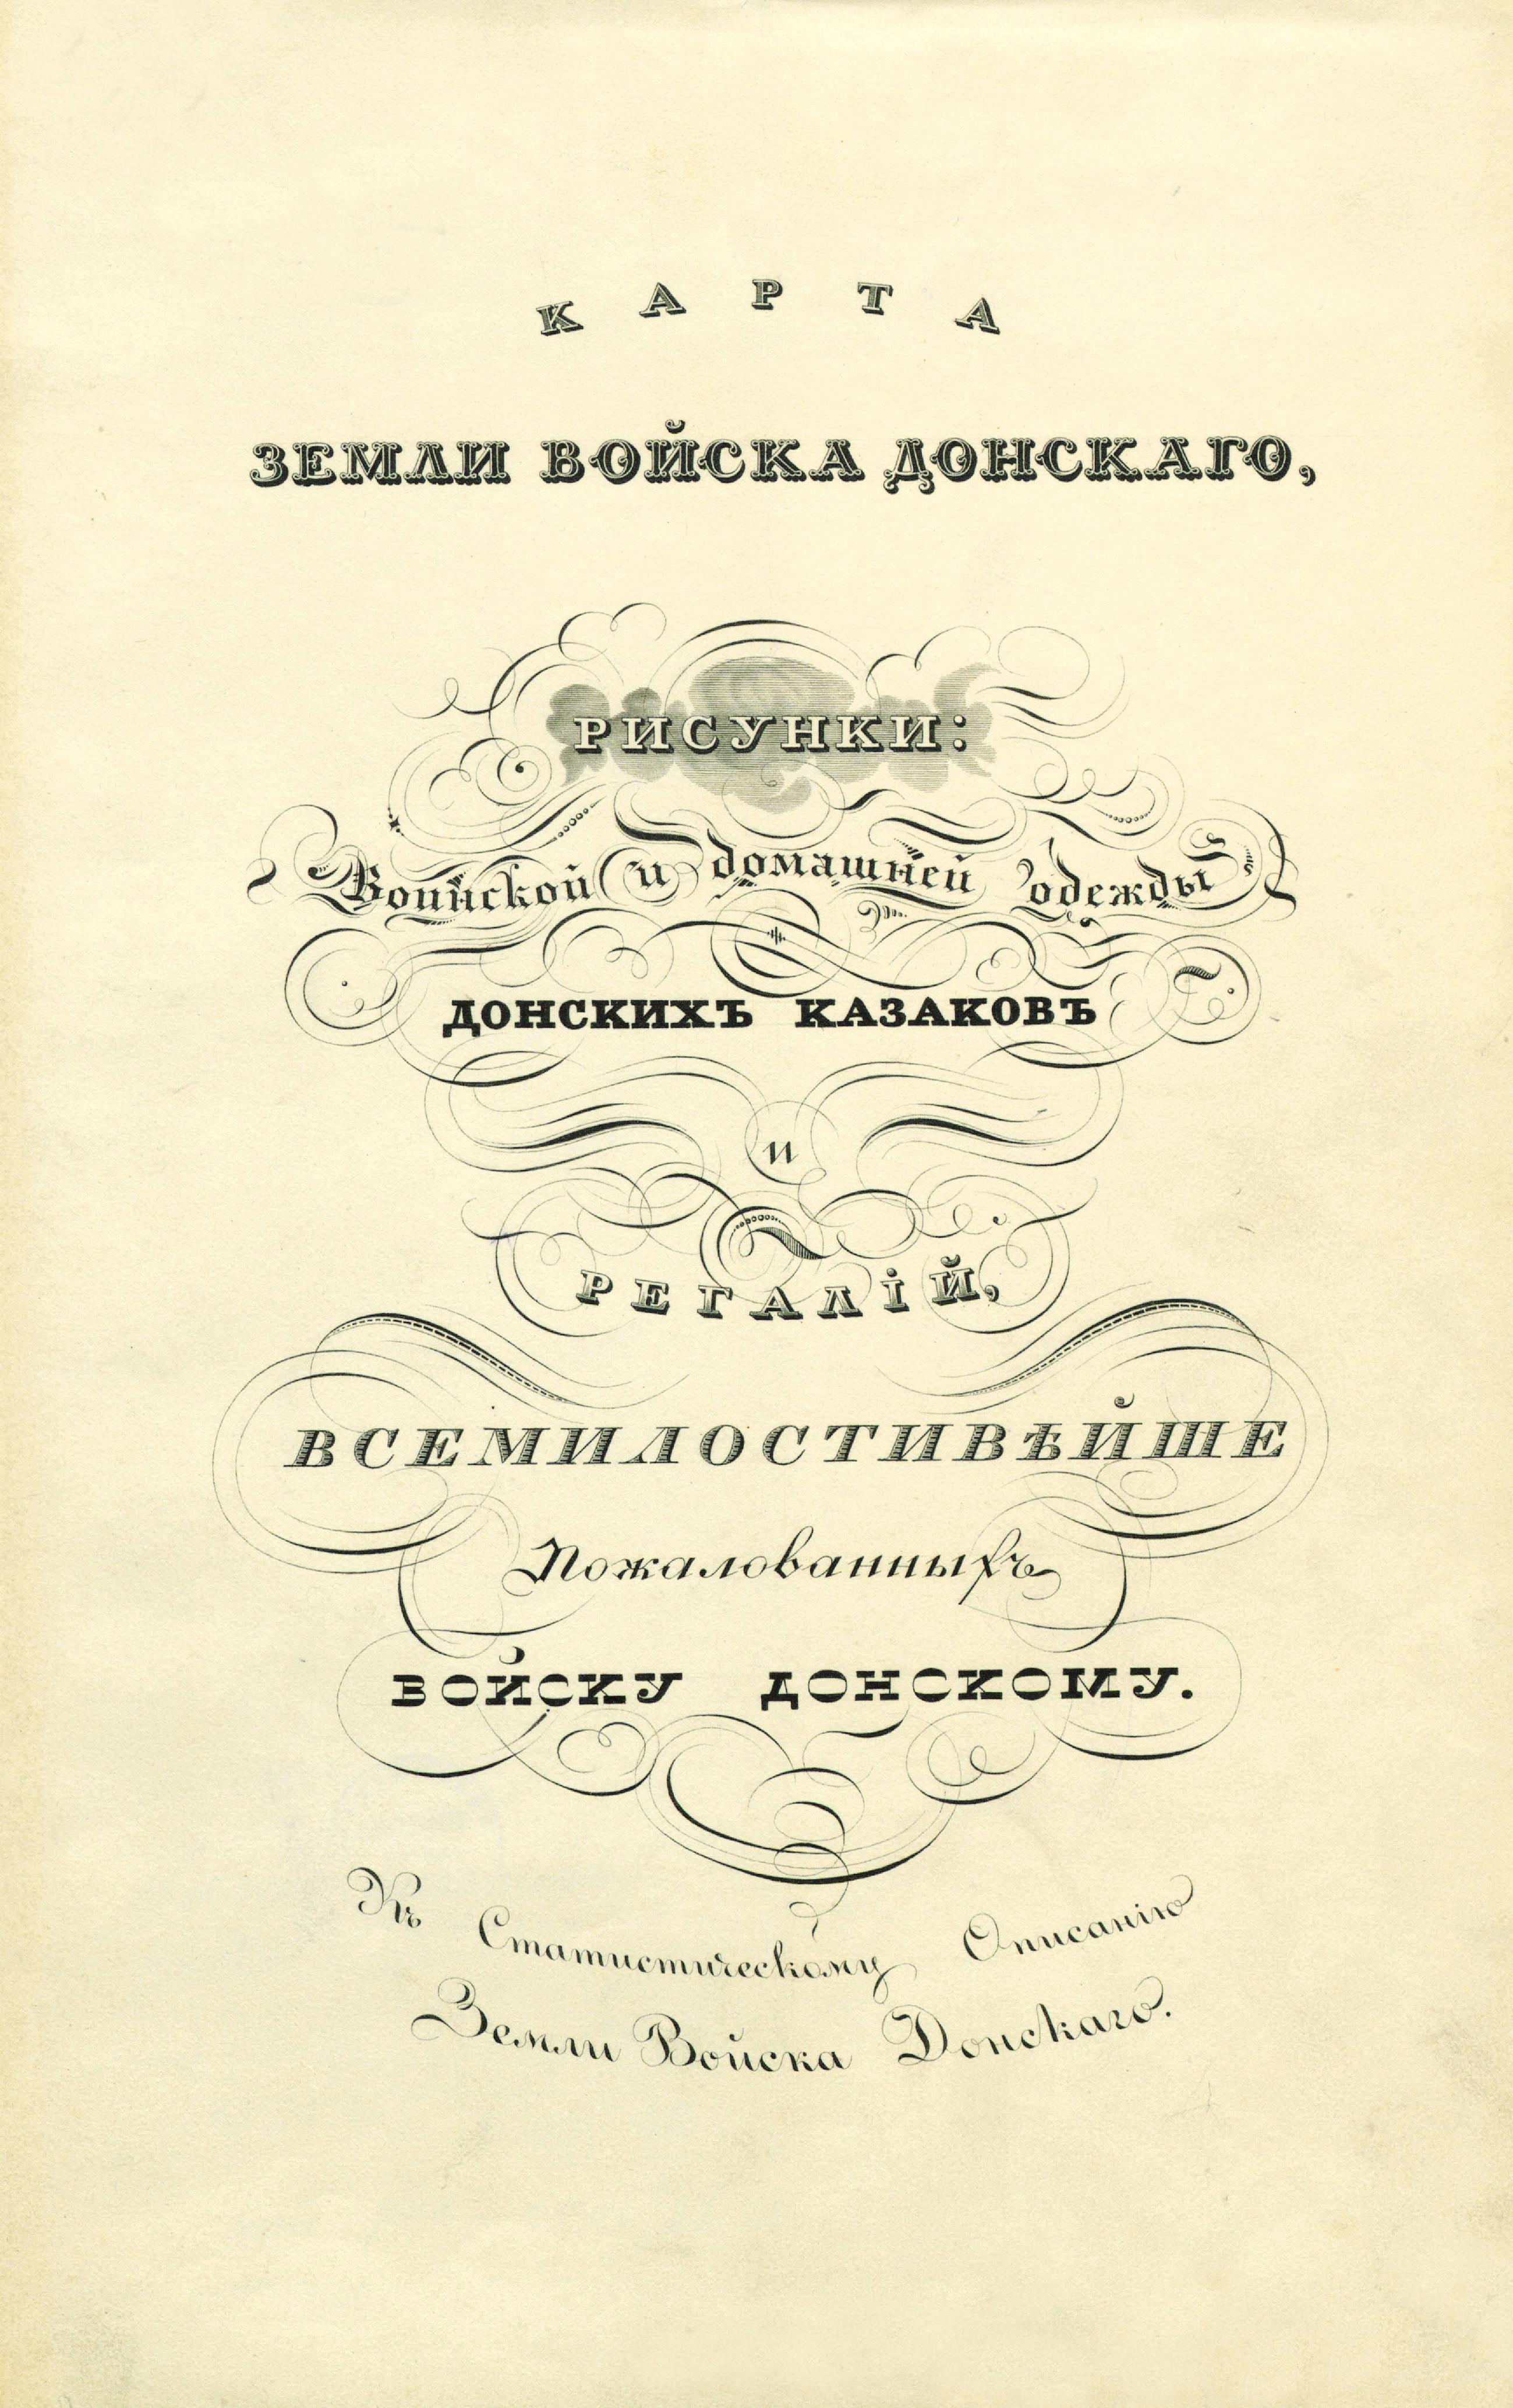 КАРТА
ЗЕМЛИ ВОЙСКА ДОНСКАГО,
РИСУНКИ:
Воинской и домашней одежды
ДОНСКИХЪ КАЗАКОВЪ
и
РЕГАЛІЙ,
ВСЕМИЛОСТИВѢЙШЕ
Пожалованныхъ
ВОЙСКУ ДОНСКОМУ.
Къ Статистическому Описанію
Земли Войска Донскаго.